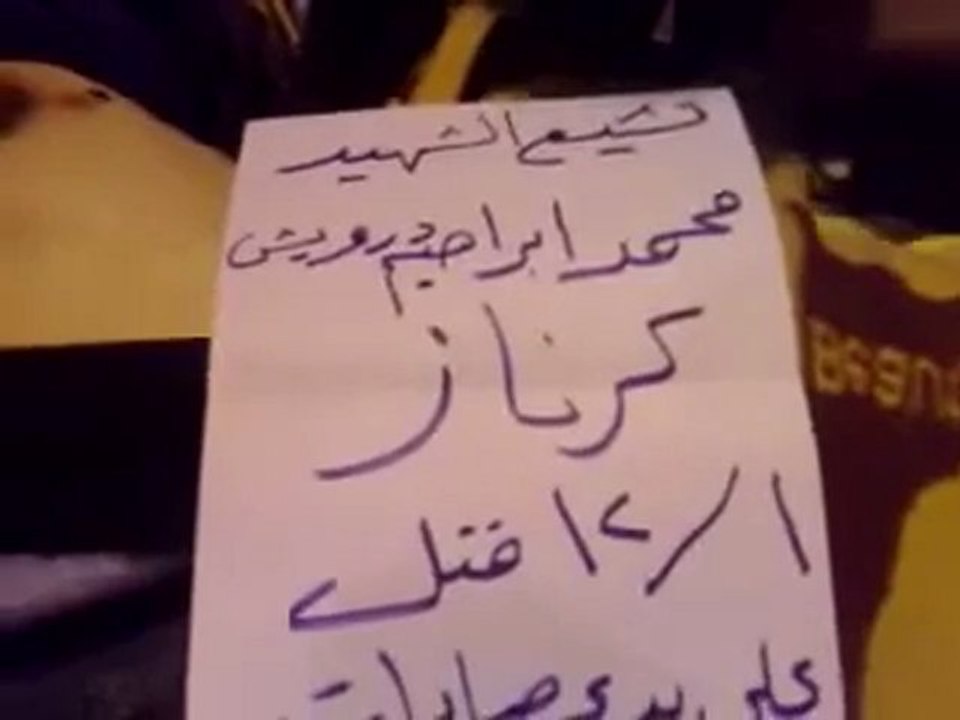 تشيع الشهيد
محمد ابراهيم درويش
كرناز
١٢/١ قتل
على يدي عصابات